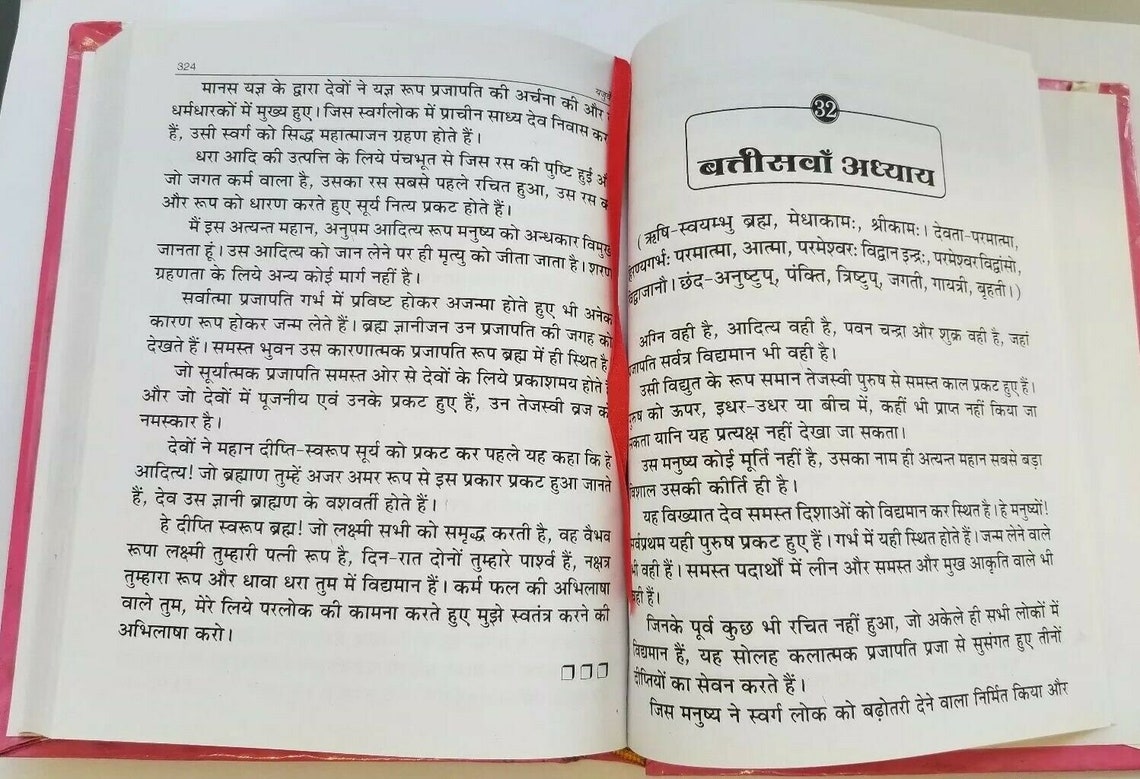 324
मानस यज्ञ के द्वारा देवों ने यज्ञ रूप प्रजापति की अर्चना की और
धर्मधारकों में मुख्य हुए। जिस स्वर्गलोक में प्राचीन साध्य देव निवास
हैं, उसी स्वर्ग को सिद्ध महात्माजन ग्रहण होते हैं।
धरा आदि की उत्पत्ति के लिये पंचभूत से जिस रस की पुष्टि हुई
जो जगत कर्म वाला है, उसका रस सबसे पहले रचित हुआ, उस रस
और रूप को धारण करते हुए सूर्य नित्य प्रकट होते हैं।
मैं इस अत्यन्त महान, अनुपम आदित्य रूप मनुष्य को अन्धकार विमुख
जानता हूं। उस आदित्य को जान लेने पर ही मृत्यु को जीता जाता है। शरण
ग्रहणता के लिये अन्य कोई मार्ग नहीं है।
सर्वात्मा प्रजापति गर्भ में प्रविष्ट होकर अजन्मा होते हुए भी अनेक
कारण रूप होकर जन्म लेते हैं। ब्रह्म ज्ञानीजन उन प्रजापति की जगह को
देखते हैं। समस्त भुवन उस कारणात्मक प्रजापति रूप ब्रह्म में ही स्थित है
जो सूर्यात्मक प्रजापति समस्त ओर से देवों के लिये प्रकाशमय होते
और जो देवों में पूजनीय एवं उनके प्रकट हुए हैं, उन तेजस्वी ब्रज को
नमस्कार है।
देवों ने महान दीप्ति-स्वरूप सूर्य को प्रकट कर पहले यह कहा कि हे
आदित्य! जो ब्रह्माण तुम्हें अजर अमर रूप से इस प्रकार प्रकट हुआ जानते
हैं, देव उस ज्ञानी ब्राह्मण के वशवर्ती होते हैं।
हे दीप्ति स्वरूप ब्रह्म! जो लक्ष्मी सभी को समृद्ध करती है, वह वैभव
रूपा लक्ष्मी तुम्हारी पत्नी रूप है, दिन-रात दोनों तुम्हारे पार्श्व हैं, नक्षत्र
तुम्हारा रूप और धावा धरा तुम में विद्यमान हैं। कर्म फल की अभिलाषा
वाले तुम, मेरे लिये परलोक की कामना करते हुए मुझे स्वतंत्र करने की
अभिलाषा करो।
32
बत्तीसवाँ अध्याय
(ऋषि-स्वयम्भु ब्रह्म, मेधाकामः, श्रीकामः। देवता-परमात्मा,
परमात्मा, आत्मा, परमेश्वरः विद्वान इन्द्रः, परमेश्वरविद्वांसो,
छंद-अनुष्टुप्, पंक्ति, त्रिष्टुप्, जगती, गायत्री, बृहती।)
अग्नि वही है, आदित्य वही है, पवन चन्द्रा और शुक्र वही है, जहां
सर्वत्र विद्यमान भी वही है।
उसी विद्युत के रूप समान तेजस्वी पुरुष से समस्त काल प्रकट हुए हैं।
को ऊपर, इधर-उधर या बीच में, कहीं भी प्राप्त नहीं किया जा
यानि यह प्रत्यक्ष नहीं देखा जा सकता।
उस मनुष्य कोई मूर्ति नहीं है, उसका नाम ही अत्यन्त महान सबसे बड़ा
उसकी कीर्ति ही है।
यह विख्यात देव समस्त दिशाओं को विद्यमान कर स्थित है। हे मनुष्यों!
यही पुरुष प्रकट हुए हैं। गर्भ में यही स्थित होते हैं। जन्म लेने वाले
वही हैं। समस्त पदार्थों में लीन और समस्त और मुख आकृति वाले भी
हैं।
जिनके पूर्व कुछ भी रचित नहीं हुआ, जो अकेले ही सभी लोकों में
विद्यमान हैं, यह सोलह कलात्मक प्रजापति प्रजा से सुसंगत हुए तीनों
दीप्तियों का सेवन करते हैं।
जिस मनुष्य ने स्वर्ग लोक को बढ़ोतरी देने वाला निर्मित किया और